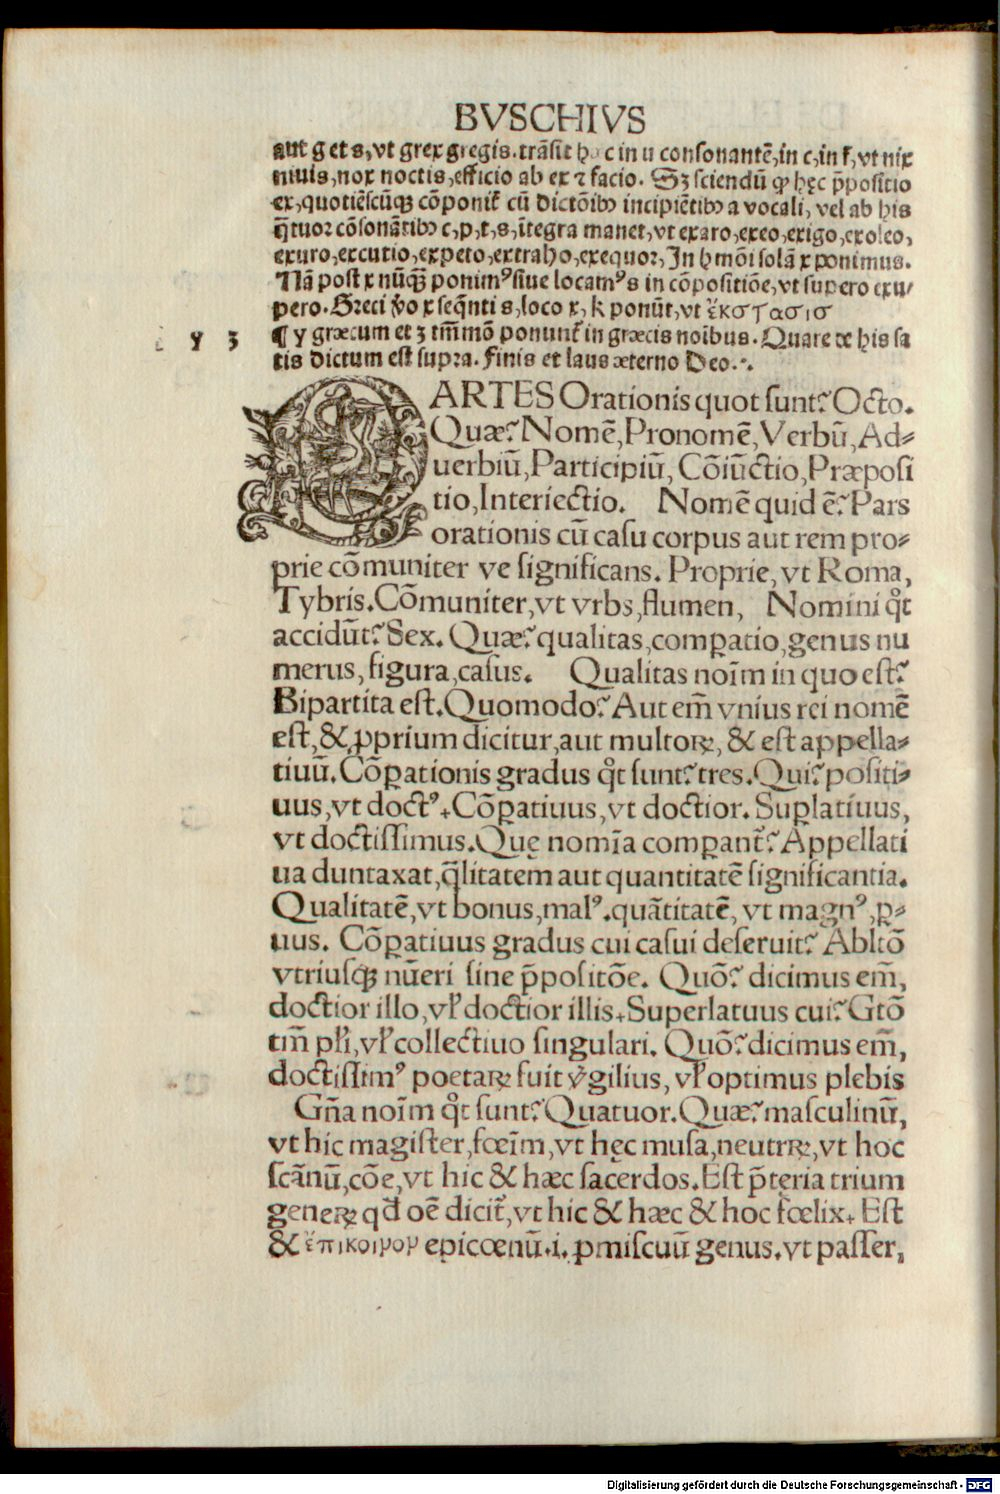 BVSCHIVS
aut g et s, vt grex gregis. trãsit h c in u consonantẽ, in c, in f, vt nix
niuis, nox noctis, efficio ab ex ⁊ facio. Sꝫ sciendũ ꝙ hęc p̃positio
ex, quotiẽscũqꝫ cõponit᷑ cũ dictõibꝰ incipiẽtibꝰ a vocali, vel ab his
q̃tuor cõsonãtibꝰ c, p, t, s, ĩtegra manet, vt exaro, exeo, exigo, exoleo,
exuro, excutio, expeto, extraho, exequor, In h mõi solã x ponimus.
Nã post x nũqꝫ̃ ponimꝰ siue locamꝰ s in cõpositiõe, vt supero exu⸗
pero. Greci v̊o x seq̃nti s, loco x, k ponũt, vt ἐκστασισ
y ʒ ¶ y græcum et ʒ tm̃mõ ponunt᷑ in græcis noĩbus. Quare de his sa
tis dictum est supra. Finis et laus æterno Deo.
ARTES Orationis quot sunt? Octo.
Quæ? Nomẽ, Pronomẽ, Verbũ, Ad⸗
uerbiũ, Participiũ, Cõiũctio, Præposi
tio, Interiectio. Nomẽ quid ẽ? Pars
orationis cũ casu corpus aut rem pro⸗
prie cõmuniter ve significans. Proprie, vt Roma,
Tybris. Cõmuniter, vt vrbs, flumen, Nomini qͦt
accidũt? Sex. Quæ? qualitas, comꝑatio, genus nu
merus, figura, casus. Qualitas noĩm in quo est?
Bipartita est. Quomodo? Aut em̃ vnius rei nomẽ
est, & ꝓprium dicitur, aut multoꝝ, & est appella⸗
tiuũ. Cõꝑationis gradus qͦt sunt? tres. Qui? positi⸗
uus, vt doctꝰ. Cõꝑatiuus, vt doctior. Suꝑlatiuus,
vt doctissimus. Quę nomĩa comꝑant᷑? Appellati
ua duntaxat, q̃litatem aut quantitatẽ significantia.
Qualitatẽ, vt bonus, malꝰ. quãtitatẽ, vt magnꝰ, ꝑ⸗
uus. Cõꝑatiuus gradus cui casui deseruit? Abltõ
vtriusqꝫ nũeri sine p̃positõe. Quõ? dicimus em̃,
doctior illo, vł doctior illis. Superlatuus cui? Gtõ
tm̃ płi, vł collectiuo singulari. Quõ? dicimus em̃,
doctissimꝰ poetaꝝ fuit v̊gilius, vł optimus plebis
Gña noĩm qͦt sunt? Quatuor. Quæ? masculinũ,
vt hic magister, fœĩm, vt hęc musa, neutrꝝ, vt hoc
scãnũ, cõe, vt hic & hæc sacerdos. Est p̃teria trium
generꝝ qđ oẽ dicit᷑, vt hic & hæc & hoc fœlix. Est
& ἐπικοινον epicœnũ .i. ꝓmiscuũ genus. vt passer,
Digitalisierung gefördert durch die Deutsche Forschungsgemeinschaft - DFG